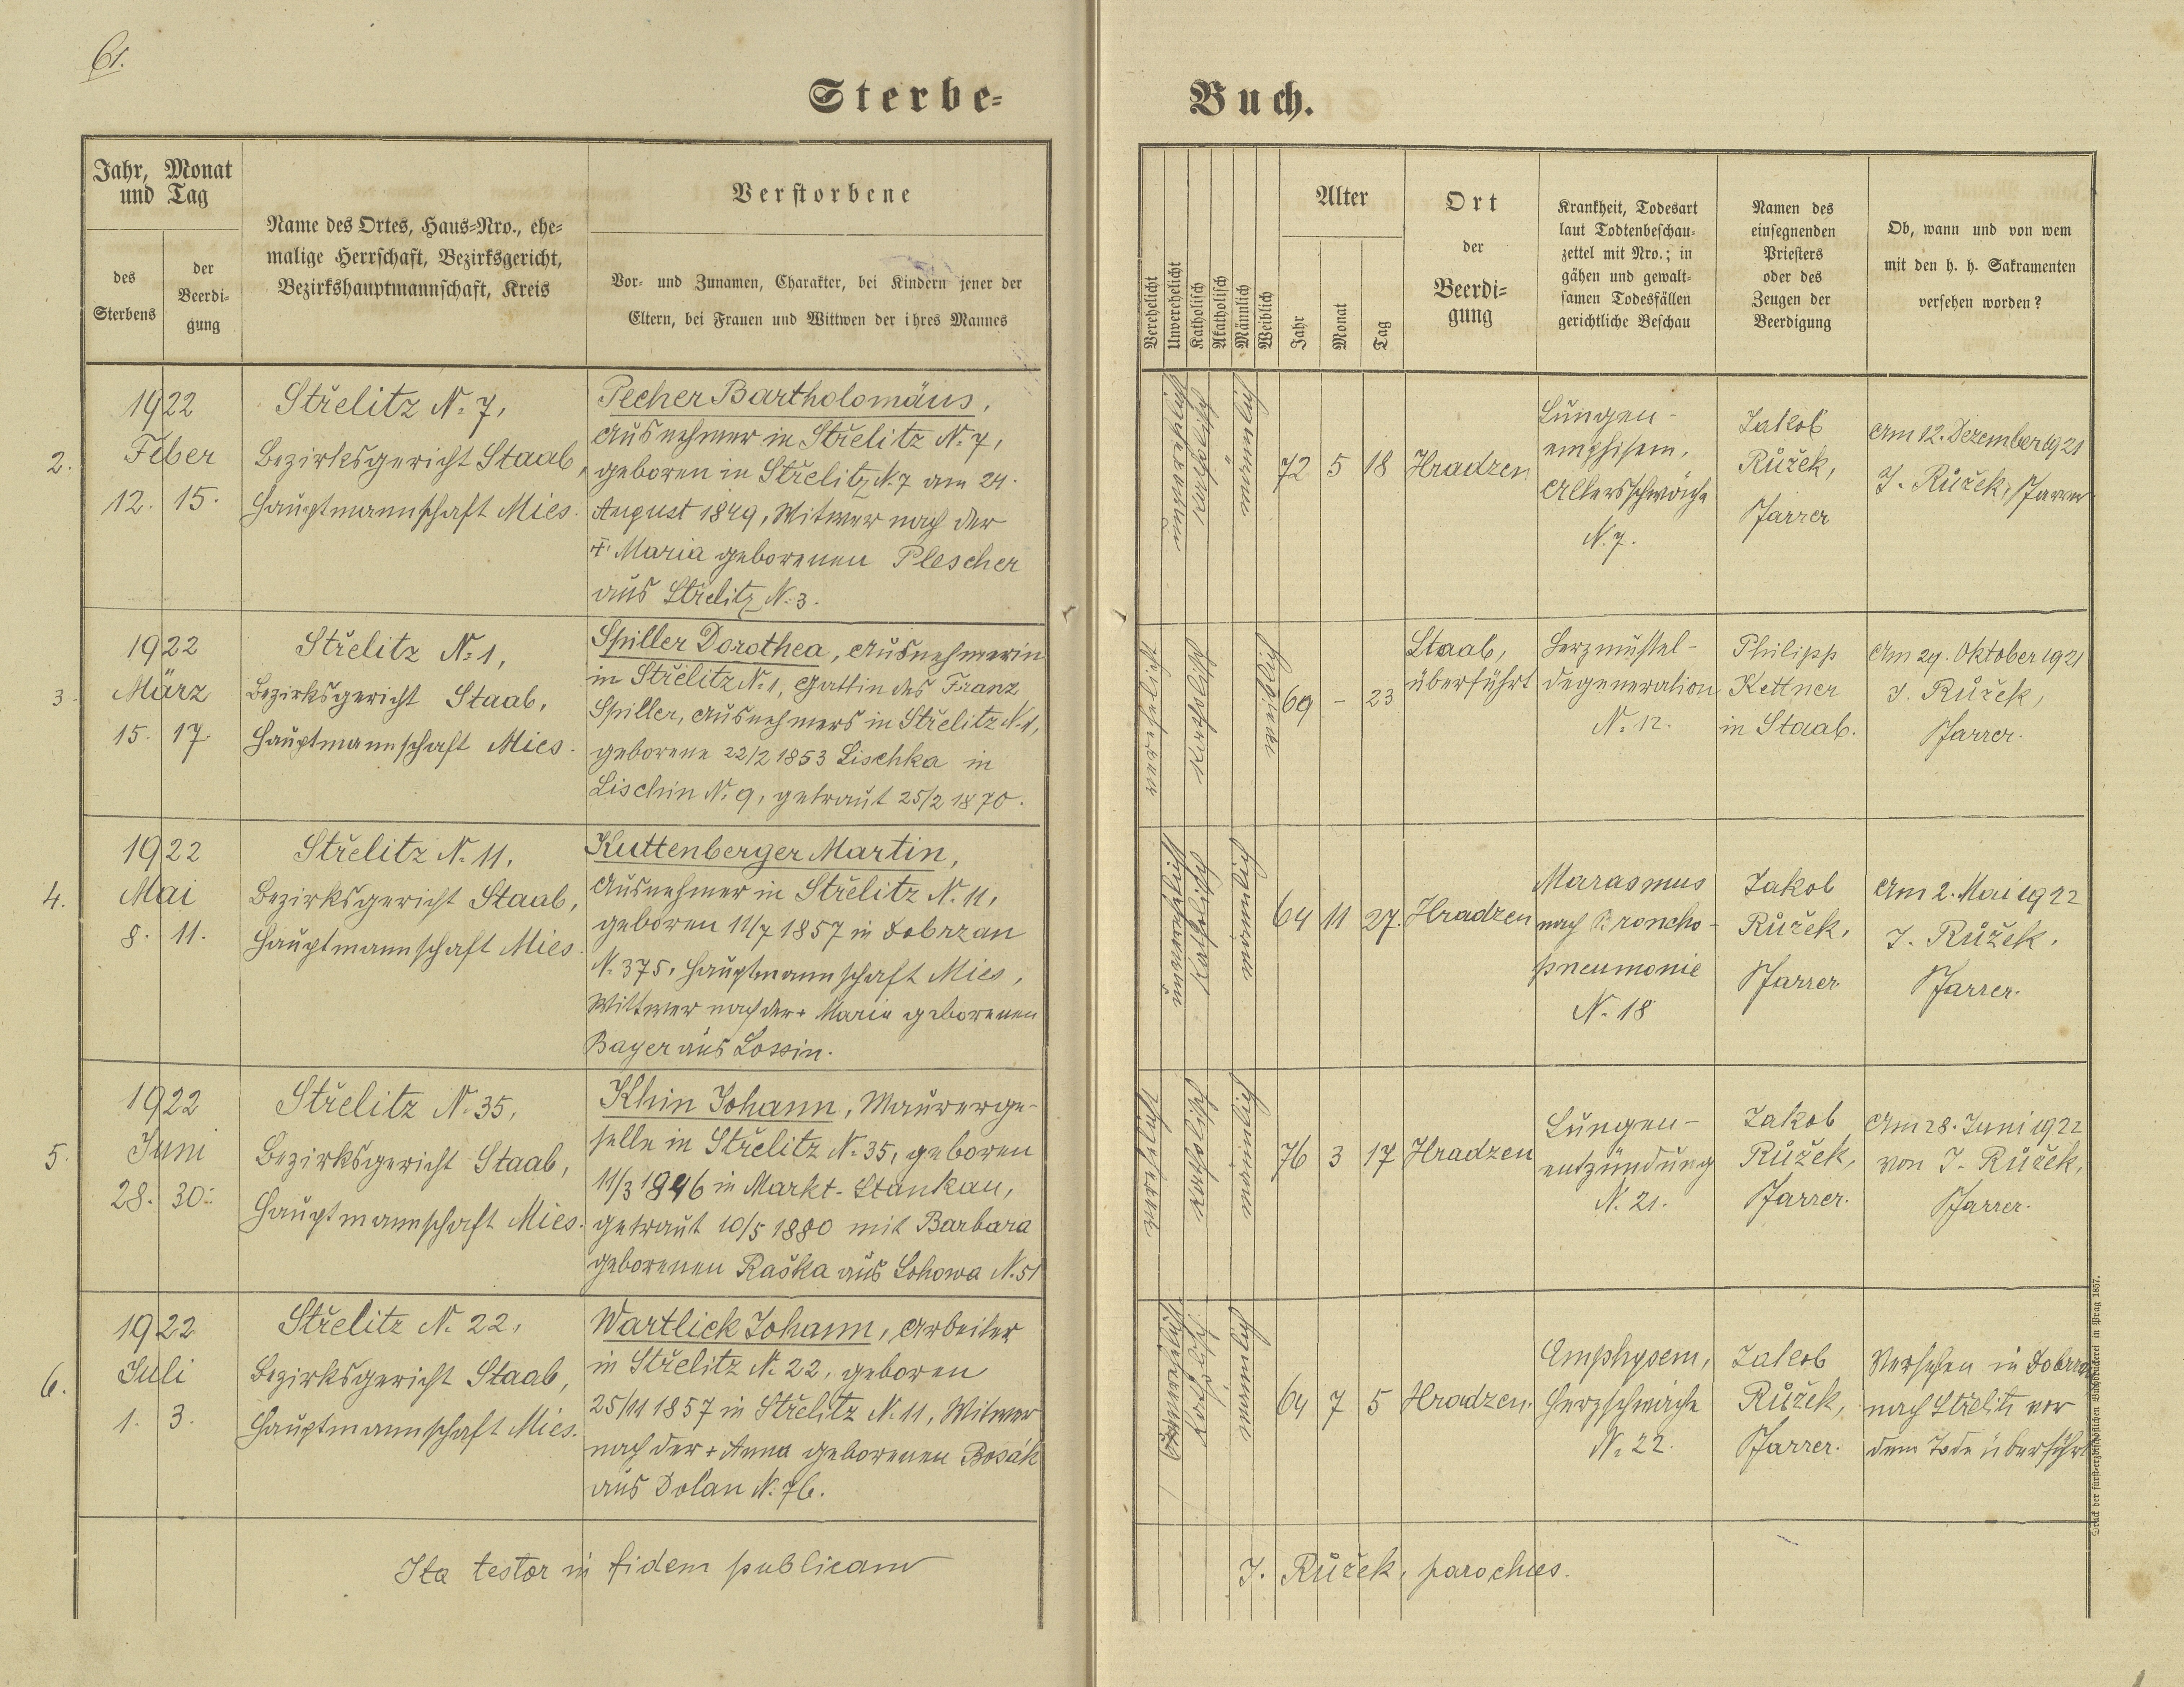 61.
Sterbe-
Buch.
Jahr, Monat
und Tag
des
Sterbens
der
Beerdi-
gung
Name des Ortes, Haus-Nro., ehe-
malige Herrschaft, Bezirksgericht,
Bezirkshauptmannschaft, Kreis
Verstorbene
Vor- und Zunamen, Charakter, bei Kindern jener der
Eltern, bei Frauen und Wittwen der ihres Mannes
Verehelicht
Unverehelicht
Katholisch
Akatholisch
Männlich
Weiblich
Alter
Jahr
Monat
Tag
Ort
der
Beerdi-
gung
Krankheit, Todesart
laut Todtenbeschau-
zettel mit Nro.; in
gähen und gewalt-
samen Todesfällen
gerichtliche Beschau
Namen des
einsegnenden
Priesters
oder des
Zeugen der
Beerdigung
Ob, wann und von wem
mit den h. h. Sakramenten
versehen worden?
2.
1922
Feber
12. 15.
Střelitz N. 7,
Bezirksgericht Staab,
Hauptmannschaft Mies.
Pecher Bartholomäus,
Ausnehmer in Střelitz N. 7,
geboren in Střelitz N. 7 am 24.
August 1849, Witwer nach der
+ Maria geborenen Plescher
aus Střelitz N. 3.
unverehelicht
katholisch
männlich
72 5 18
Hradzen
Lungen-
emphisem,
Altersschwäche
N. 7.
Jakob
Růžek,
Pfarrer
Am 12. Dezember 1921
J. Růžek, Pfarrer
3.
1922
März
15. 17.
Střelitz N. 1,
Bezirksgericht Staab,
Hauptmannschaft Mies.
Spiller Dorothea, Ausnehmerin
in Střelitz N. 1, Gattin des Franz
Spiller, Ausnehmers in Střelitz N. 1,
geborene 22/2 1853 Lischka in
Lischin N. 9, getraut 25/2 1870.
verehelicht
katholisch
weiblich
69 - 23
Staab,
überführt
Herzmuskel-
degeneration
N. 12.
Philipp
Kettner
in Staab.
Am 29. Oktober 1921
J. Růžek,
Pfarrer.
4.
1922
Mai
8. 11.
Střelitz N. 11,
Bezirksgericht Staab,
Hauptmannschaft Mies.
Kuttenberger Martin,
Ausnehmer in Střelitz N. 11,
geboren 11/7 1857 in Dobrzan
N. 375, Hauptmannschaft Mies,
Wittwer nach der + Maria geborenen
Bayer aus Lossin.
unverehelicht
katholisch
männlich
64 11 27.
Hradzen
Marasmus
nach Broncho-
pneumonie
N. 18
Jakob
Růžek,
Pfarrer
Am 2. Mai 1922
J. Růžek,
Pfarrer.
5.
1922
Juni
28. 30.
Střelitz N. 35,
Bezirksgericht Staab,
Hauptmannschaft Mies.
Khin Johann, Maurerge-
selle in Střelitz N. 35, geboren
11/3 1846 in Markt-Stankau,
getraut 10/5 1880 mit Barbara
geborenen Raška aus Lohowa N. 51
verehelicht
katholisch
männlich
76 3 17
Hradzen
Lungen-
entzündung
N. 21.
Jakob
Růžek,
Pfarrer.
Am 28. Juni 1922
von J. Růžek,
Pfarrer.
6.
1922
Juli
1. 3.
Střelitz N. 22,
Bezirksgericht Staab,
Hauptmannschaft Mies.
Wartlick Johann, Arbeiter
in Střelitz N. 22, geboren
25/11 1857 in Střelitz N. 11, Witwer
nach der + Anna geborenen Bosák
aus Dolan N. 76.
unverehelicht
katholisch
männlich
64 7 5
Hradzen.
Emphysem,
Herzschwäche
N. 22.
Jakob
Růžek,
Pfarrer.
Versehen in Dobrzan
nach Střelitz vor
dem Tode überführt
Ita testor in fidem publicam
J. Růžek, parochus.
Druck der fürsterzbischöflichen Buchdruckerei in Prag 1857.